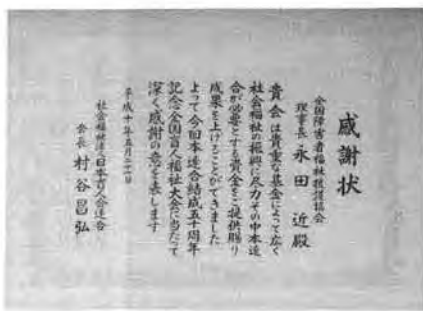 感謝状
全国障害者福祉援護協会
理事長 永田 近殿
貴会は貴重な基金によって広く
社会福祉の振興に尽力その中本連
合が必要とする資金をご提供賜り
成果を上げることができました
よって今回本連合結成五十周年
記念全国盲人福祉大会に当たって
深く感謝の意を表します
平成十年五月二十一日
社会福祉法人日本盲人会連合
会長 村谷昌弘